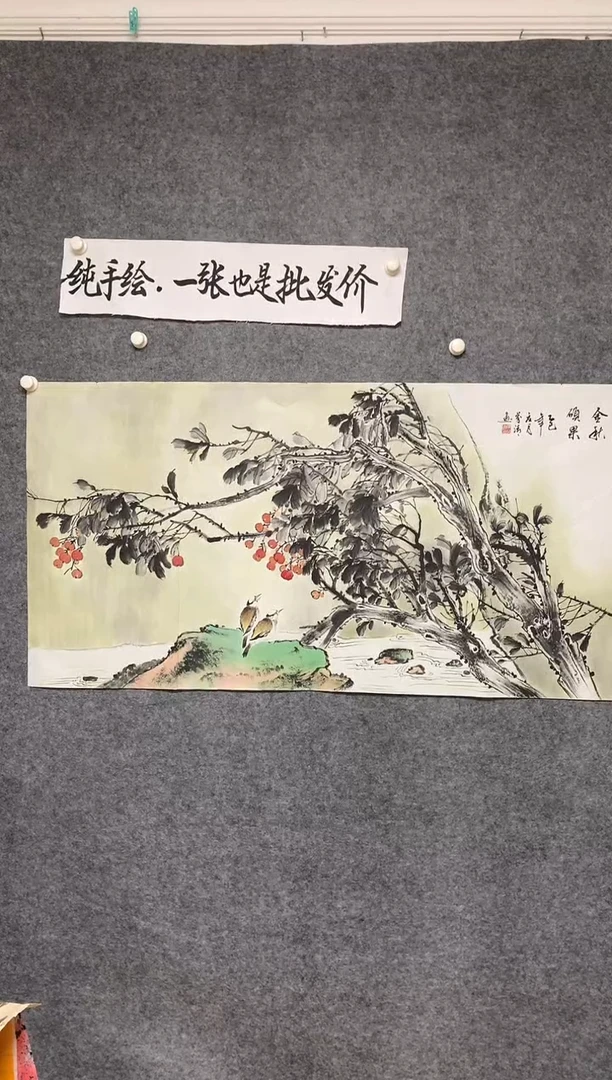 纯手绘.一张也是批发价
金秋
硕果
乙巳
年